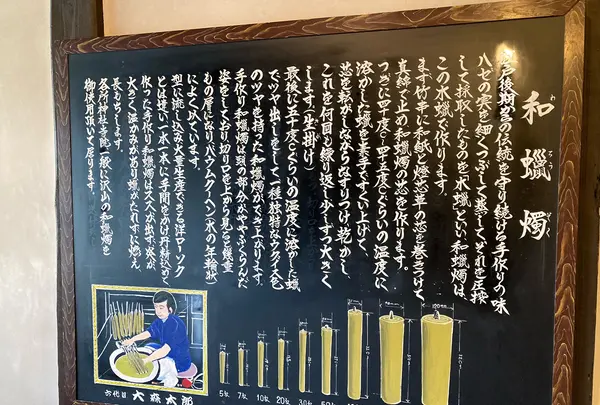 和蠟燭
わ
ろうそく
江戸後期からの伝統を守り続ける手作りの味
ハゼの実を細くつぶして蒸してそれを圧搾
して採取したものを木蠟といい、和蠟燭は、
この木蠟で作ります。
まず竹串に和紙と燈芯草の芯を巻きつけ、
真綿で止め和蠟燭の芯を作ります。
つぎに四十度C〜四十五度Cぐらいの温度に
溶かした蠟を素手ですくい上げて、
芯を転がしながらなすりつけ、乾かし
これを何回も繰り返して少しずつ大きく
します。(生掛け)
最後に五十度Cぐらいの温度に溶かした蠟
でツヤ出しをして一種独特なウグイス色
のツヤを持った和蠟燭ができ上がります。
手作り和蠟燭は頭の部分がややふくらんだ
姿をしており切り口を上から見ると幾重
もの層になりバウムクーヘン(木の年輪状)
によく似ています。
型に流し込み大量生産できる洋ローソク
とは違い一本一本に手間をかけ丹精込めて
作った手作り和蠟燭はススが出ず、炎が
大きく温かみがあり蠟がたれずに燃え
長もちします。
各所神社、寺院、一般に沢山の和蠟燭を
御使用頂いて居ります。
六代目 大森太郎
5匁
7匁
10匁
20匁
30匁
50匁
100匁